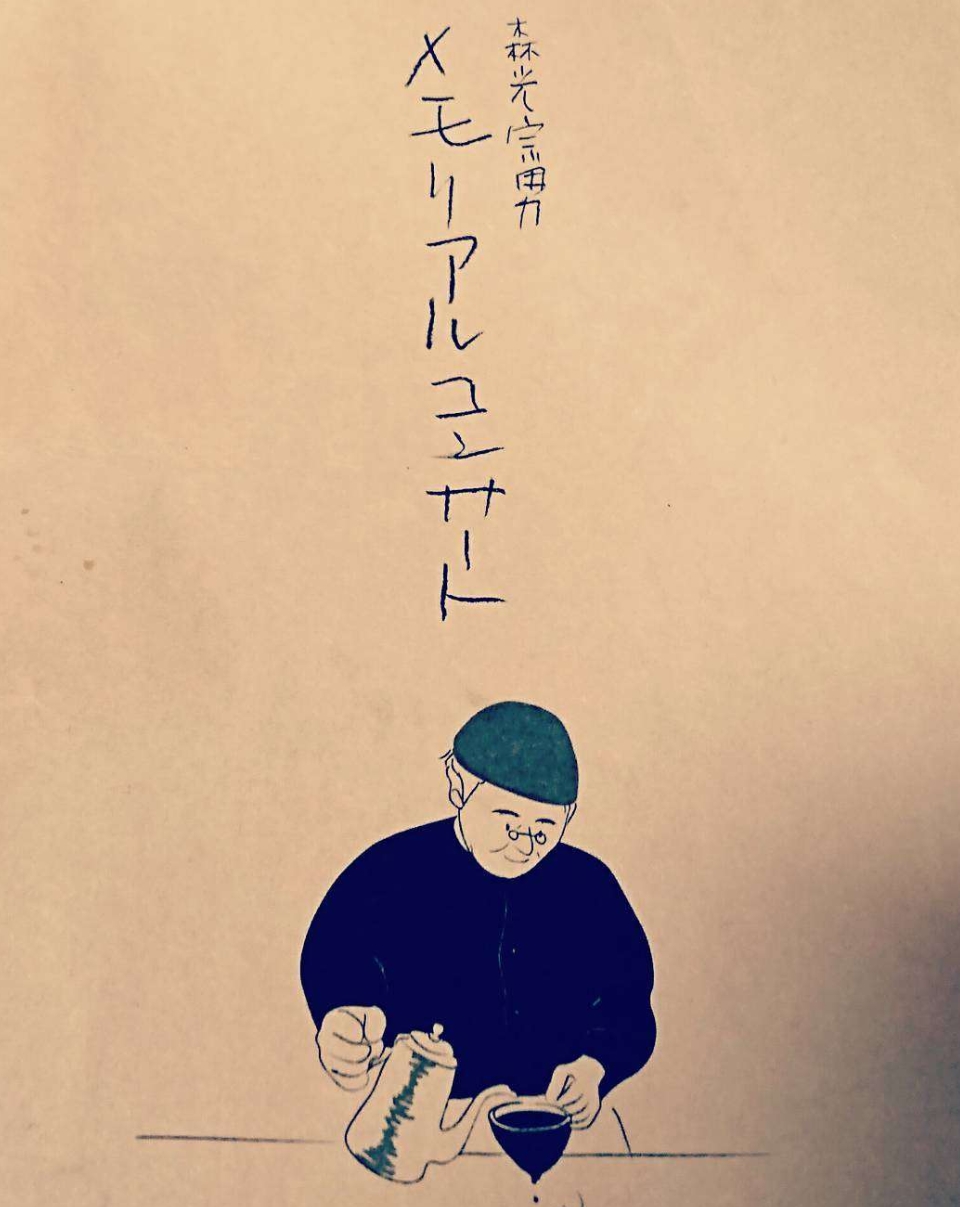 森光宗男
メモリアルコンサート